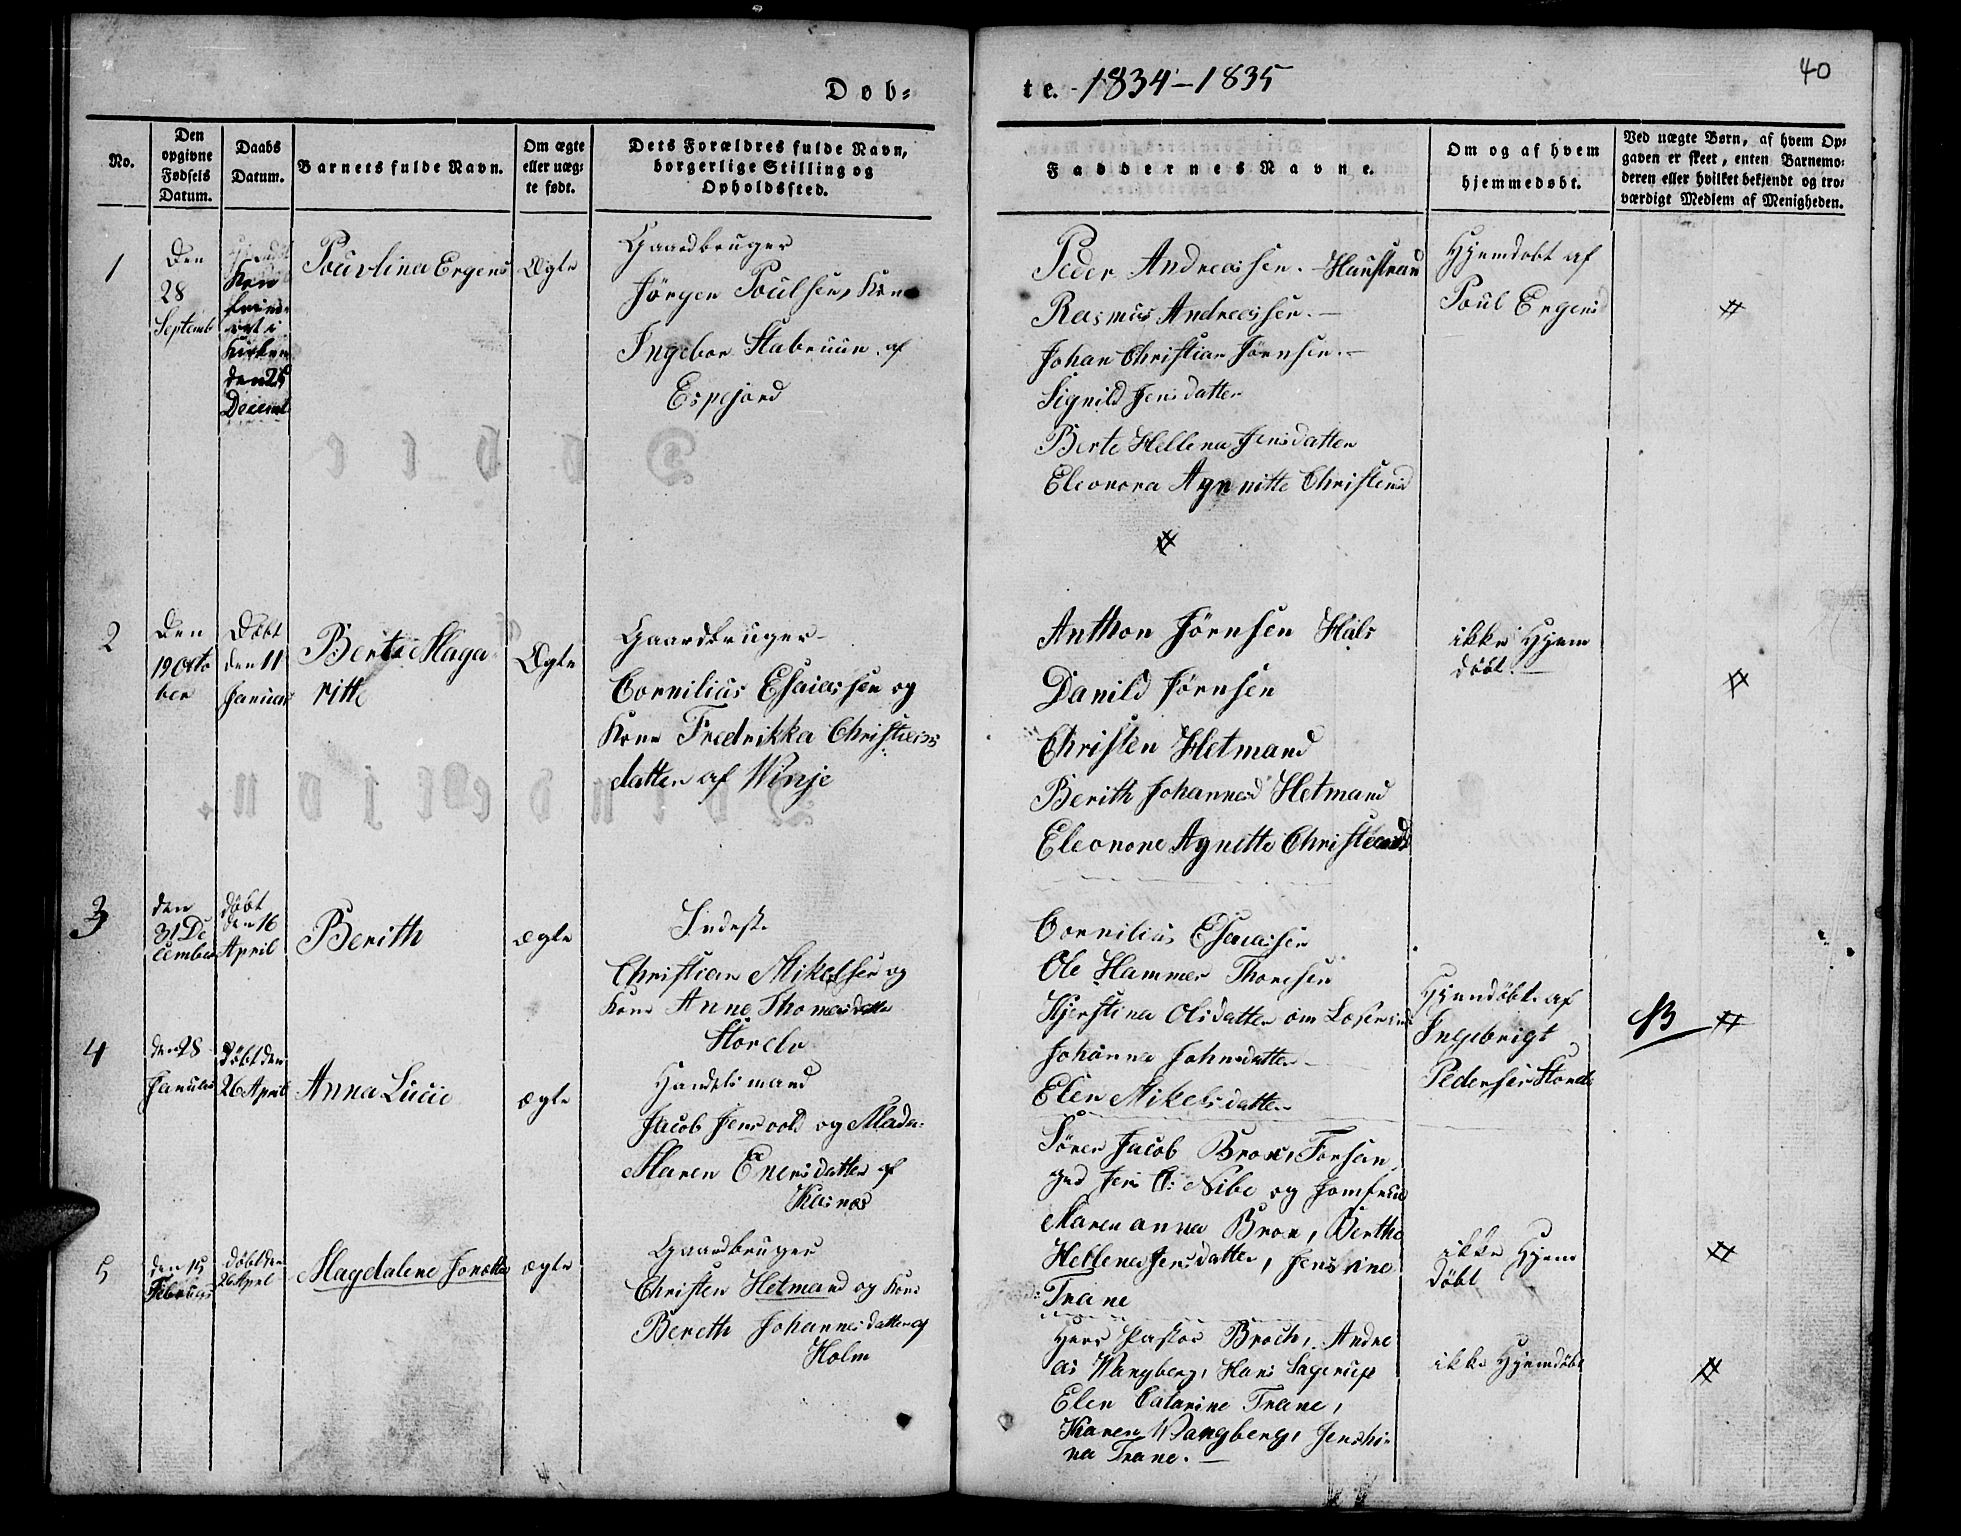 Døb=
te. 1834-1835
40
No.
Den
opgivne
Fødsels
Datum.
Daabs
Datum.
Barnets fulde Navn.
Om ægte
eller uæg=
te født.
Dets Forældres fulde Navn,
borgerlige Stilling og
Opholdssted.
Faddernes Navne.
Om og af hvem
hjemmedøbt.
Ved uægte Børn, af hvem Op=
gaven er skeet, enten Barnemo=
deren eller hvilket bekjendt og tro=
værdigt Medlem af Menigheden.
1
Den
28
Septemb
Kirken
den 25
Decemb
Pouvlina Ergens
Ægte
Gaardbruger
Jørgen Poulsen, Kone
Ingebor af
Espejord
Peder Andreassen.
Rasmus Andreassen.
Johan Christian Jørnsen.
Signild Jensdatter
Berte Hellena Jensdatter
Eleonora Agnnitte Christensd
Hjemdøbt af
Poul Ergens
2
Den
19 Octo
ber
Døbt
den 11
Januar
Berte Maga
ritte
Ægte
Gaardbruger
Cornilius Esaiassen og
Kone Fredrikka Christians
datter af Winje
Anthon Jørnsen Hals
Danild Jørnsen
Christen Hetmand
Berith Johannesd Hetmand
Eleonore Agnette Christiansd
ikke Hjem
døbt.
3
den
31 De
cember
døbt
den 16
April
Berith
ægte
Inderst
Christian Mikelsen og
Kone Anne Thomasdatter
Storelv
Cornilius Esaiassen
Ole Hammer Thoresen
Kjerstina Olsdatter
Johanna Johnsdatter
Elen Mikelsdatter
Hjemdøbt af
Ingebrigt
Pedersen Storelv
4
den 28
Januar
døbt den
26 April
Anna Lucie
ægte
Handelsmand
Jacob Jensvold og Mada=
Maren Enersdatter af
Klosnæs
Sören Jacob Brox, Forsan
gud Jens C: Nibe og Jomfrue
Maren anna Brox, Berthe
Hellena Jensdatter, Jensvine
Trane
ikke Hjem
døbt
5
den 15
Februar
døbt den
26 Apri
Magdalene Jonetta
ægte
Gaardbruger
Christen Hetmand og Kone
Bereth Johannesdatter af
Holm
Herr Pastor Broch, Andre
as Wangberg, Hans Sagerup
Elen Catarine Trane,
Karen Wangberg, Jenshi=
na Trane.
ikke Hjemdøbt